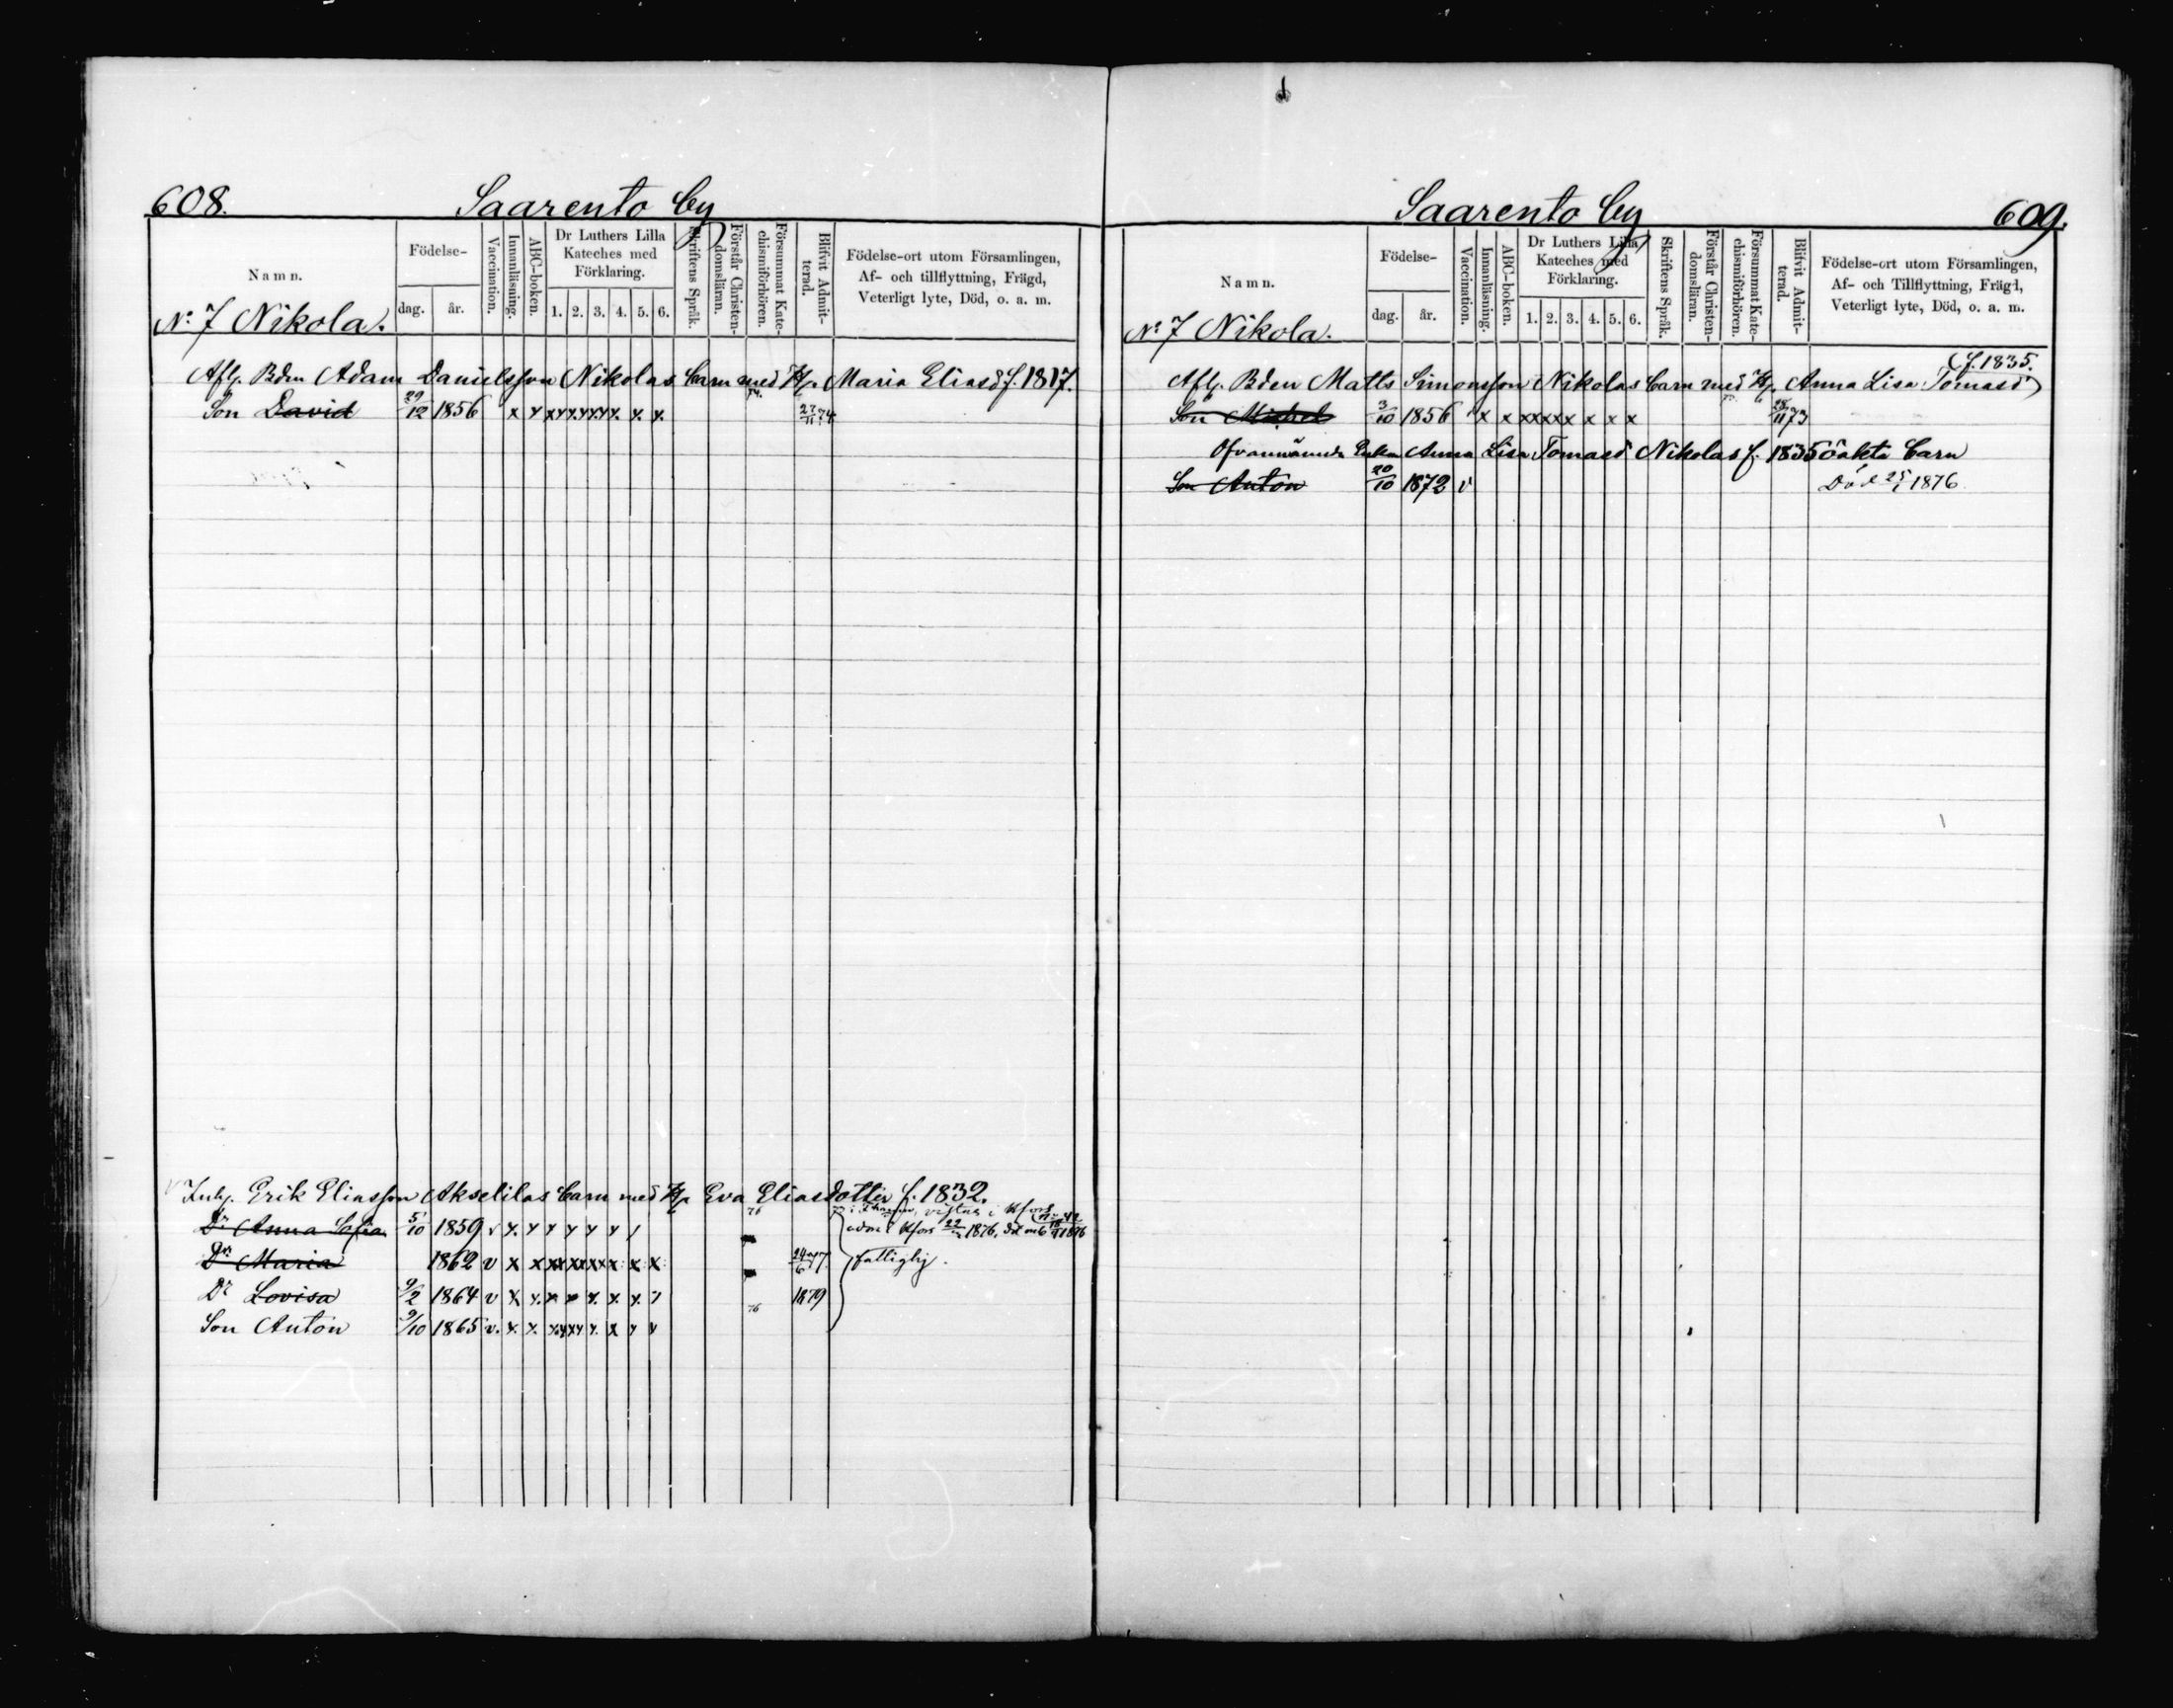 608.
Saarento by
Namn.
Födelse-
dag.
år.
Vaccination.
Innanläsning.
ABC-boken.
Dr Luthers Lilla
Kateches med
Förklaring.
1. 2. 3. 4. 5. 6.
Skriftens Språk.
Förstår Christen-
domsläran.
Försummat Kate-
chismiförhören.
Blifvit Admit-
terad.
Födelse-ort utom Församlingen,
Af- och tillflyttning, Frägd,
Veterligt lyte, Död, o. a. m.
No 7 Nikola.
Afl. Bden Adam Danielsson Nikolas barn med H. Maria Eliasd f. 1817.
Son David 29/12 1856 x x x x x x x x x 27/11 74
Inh. Erik Eliasson Akselilas barn med H. Eva Eliasdotter f. 1832.
76 vistas i Hfors
Dr Anna Sofia 5/10 1859 v x x x x x x x Hfors 22/ 1876
Dr Maria 1862 v x x x x x x x x 24/6 77 fattighj.
Dr Lovisa 9/2 1864 v x x x x x x x 1879
76
Son Anton 9/10 1865 v. x x x x x x x x
Saarento by
609.
Namn.
Födelse-
dag.
år.
Vaccination.
Innanläsning.
ABC-boken.
Dr Luthers Lilla
Kateches med
Förklaring.
1. 2. 3. 4. 5. 6.
Skriftens Språk.
Förstår Christen-
domsläran.
Försummat Kate-
chismiförhören.
Blifvit Admit-
terad.
Födelse-ort utom Församlingen,
Af- och Tillflyttning, Frägd,
Veterligt lyte, Död, o. a. m.
No 7 Nikola.
f. 1835.
Afl. Bden Matts Simonsson Nikolas barn med H. Anna Lisa Tomasd
Son Mickel 3/10 1856 x x x x x x x x 28/11 73
Ofvannämnda Enkan Anna Lisa Tomasd Nikolas f. 1835 oäkta barn
Son Anton 20/10 1872 v Död 25/1 1876